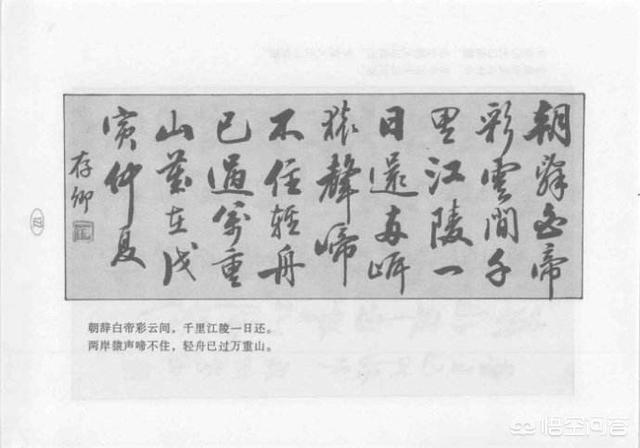 朝辭白帝
彩雲間千
里江陵一
日還兩岸
猿聲啼
不住輕舟
已過萬重
山歲在戊
寅仲夏
存卿
朝辞白帝彩云间，千里江陵一日还。
两岸猿声啼不住，轻舟已过万重山。
悟空问答